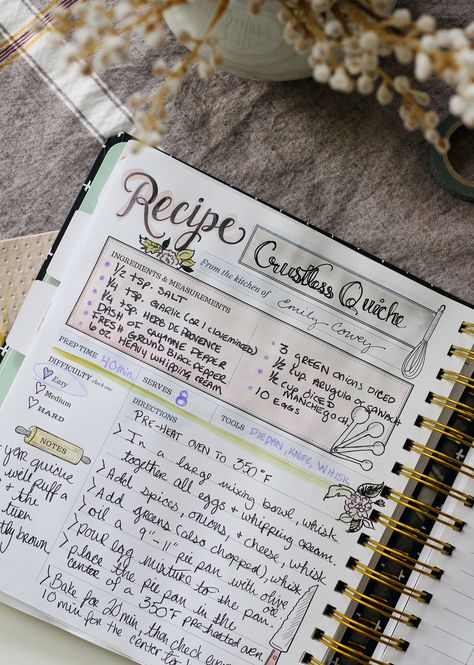 Recipe
Crustless Quiche
From the kitchen of Emily Conley
INGREDIENTS & MEASUREMENTS
1/2 tsp. SALT
1/4 tsp. GARLIC (OR 1 CLOVE MINCED)
1/4 tsp. HERB DE PROVENCE
DASH OF CAYENNE PEPPER
FRESH GROUND BLACK PEPPER
6 oz HEAVY WHIPPING CREAM
3 GREEN ONIONS DICED
1/2 CUP ARUGULA OR SPINACH
1/2 CUP DICED
MANCHEGO CH.
10 EGGS
PREP TIME 40 min.
SERVES 8
DIFFICULTY check one
Easy
Medium
HARD
TOOLS
PIE PAN, KNIFE, WHISK
DIRECTIONS
PRE-HEAT OVEN TO 350°F
> In a large mixing bowl, whisk
together all eggs & whipping cream.
> Add spices, onions, & cheese, whisk
> Add greens (also chopped), whisk
> oil a 9"-11" pie pan with olive oil
> pour egg mixture to the pan.
> place the pie pan in the
center of a 350°F pre-heated oven
> Bake for 20 min, then check every
10 min for the center to
NOTES
you quiche
will puff a
& the
turn
brown